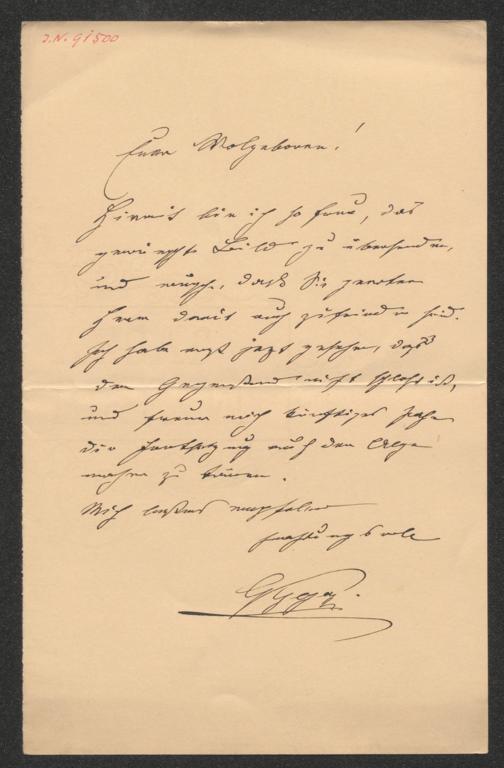 J.N. 91500
Euer Wolgeboren!
Hiemit bin ich so frei, das
gewünschte Bild zu übersenden,
und wünsche, daß Sie
damit auch zufrieden sind.
Ich habe erst jetzt gesehen, daß
der Gegenstand nicht schlecht ist,
und freue mich künftiges Jahr
die Fortsetzung auf der Alpe
machen zu können.
Mich bestens empfelend
hochachtungsvoll